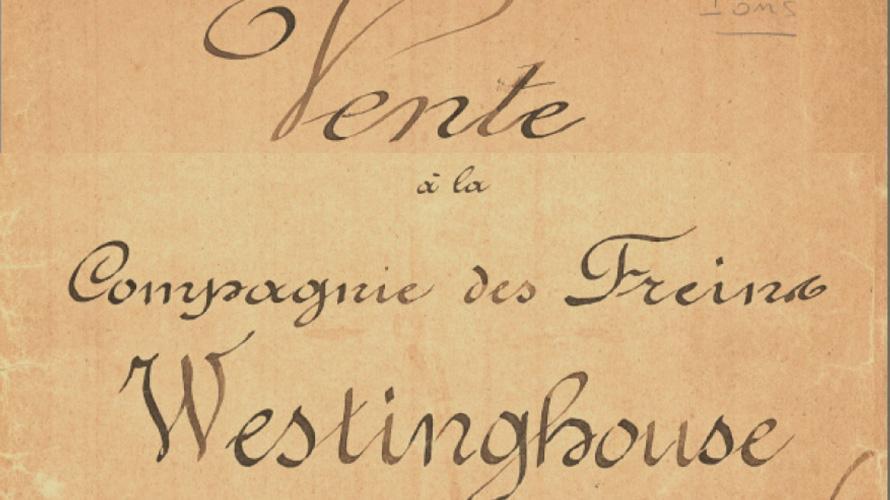 Vente
à la
Compagnie des Freins
Westinghouse